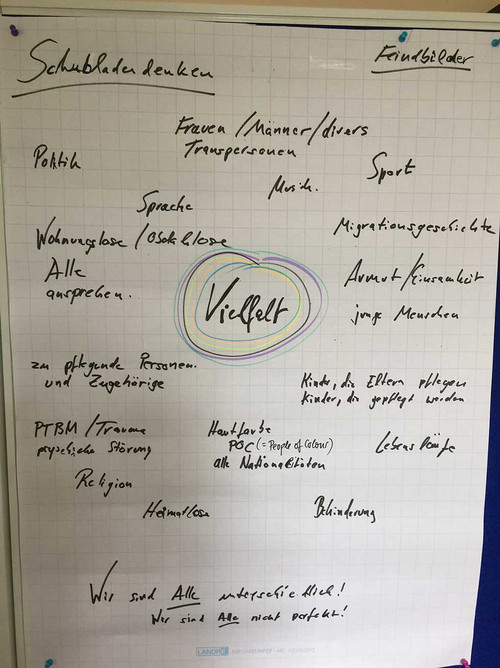 Schubladendenken
Feindbilder
Frauen / Männer / divers
Transpersonen
Politik
Sport
Musik.
Sprache
Migrationsgeschichte
Wohnungslose / Obdachlose
Alle
ansprechen.
Armut / Einsamkeit
Vielfalt
junge Menschen
zu pflegende Personen.
und Zugehörige
Kinder, die Eltern pflegen
Kinder, die gepflegt werden
PTBM / Trauma
psychische Störung
Hautfarbe
POC (= People of Colour)
alle Nationalitäten
Religion
Heimatlose
Behinderung
Wir sind Alle unterschiedlich!
Wir sind Alle nicht perfekt!